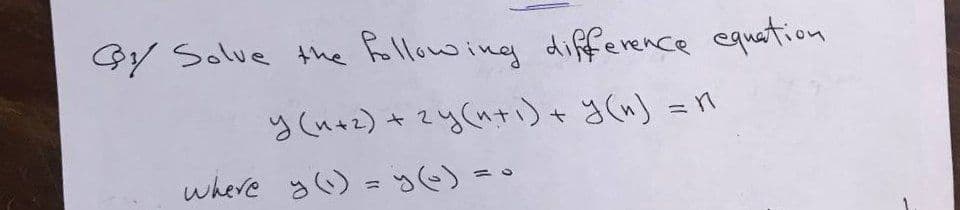 Q3/ Solve the following difference equation
y(n+2) + 2y(n+1) + y(n) = n
where y(1) = y(0) = 0